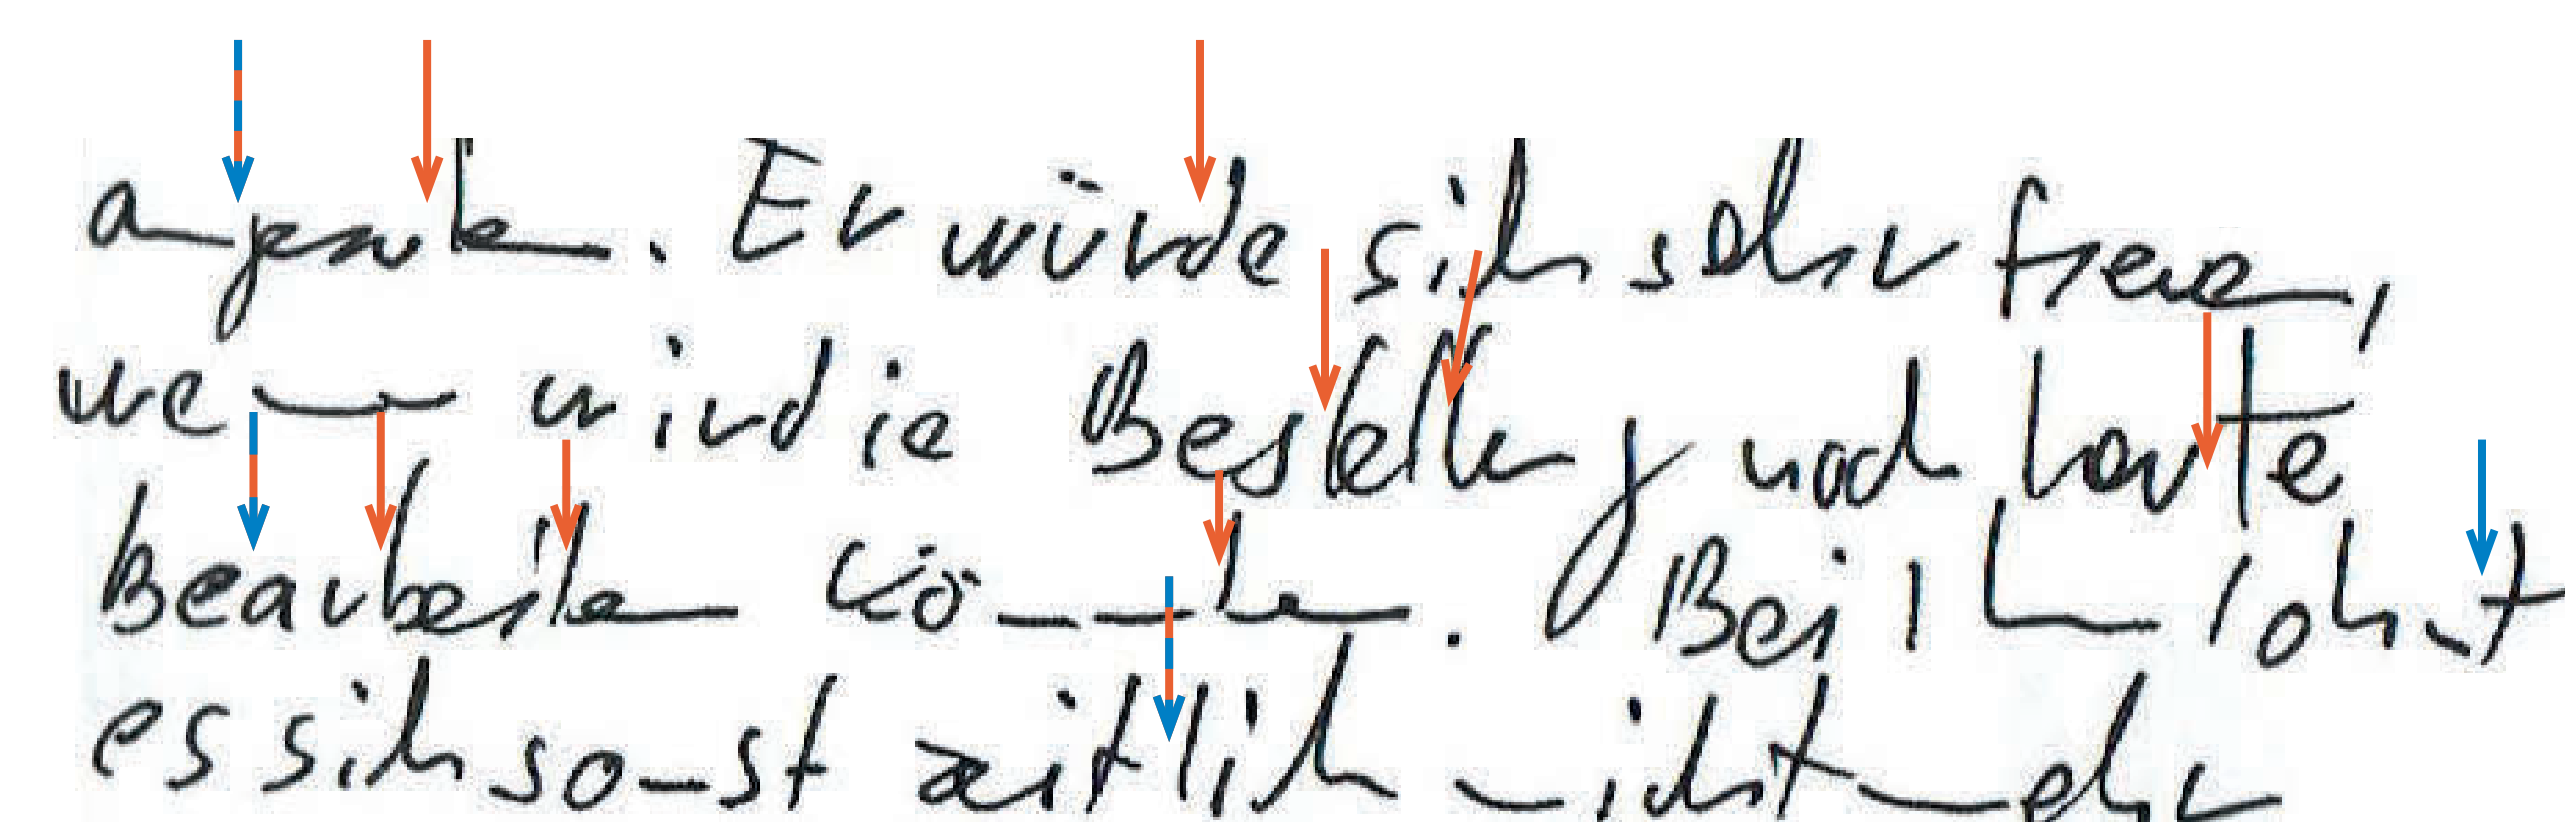 angerufen. Er würde sich sehr freuen,
wenn wir die Bestellung noch heute
bearbeiten könnten. Bei ihm lohnt
es sich sonst zeitlich nicht mehr